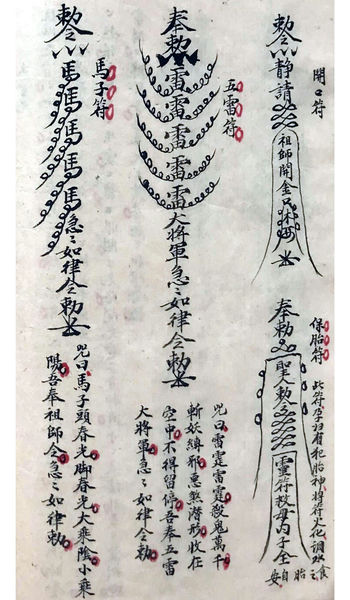 開口符
敕令靜請
祖師開金口
保胎符
奉敕
聖人敕令
靈符救母內子全
此符孕婦有犯胎神將符火化調水食之胎自安
五雷符
奉敕雷雷雷雷雷大將軍急〻如律令敕
咒曰雷霆雷霆殺鬼萬千
斬妖縛邪惡煞潛形收在
空中不得留停吾奉五雷
大將軍急〻如律令敕
馬子符
敕令馬馬馬馬馬急〻如律令敕
咒曰馬子頭春光脚春光大乘陰小乘
陽吾奉祖師令急〻如律敕